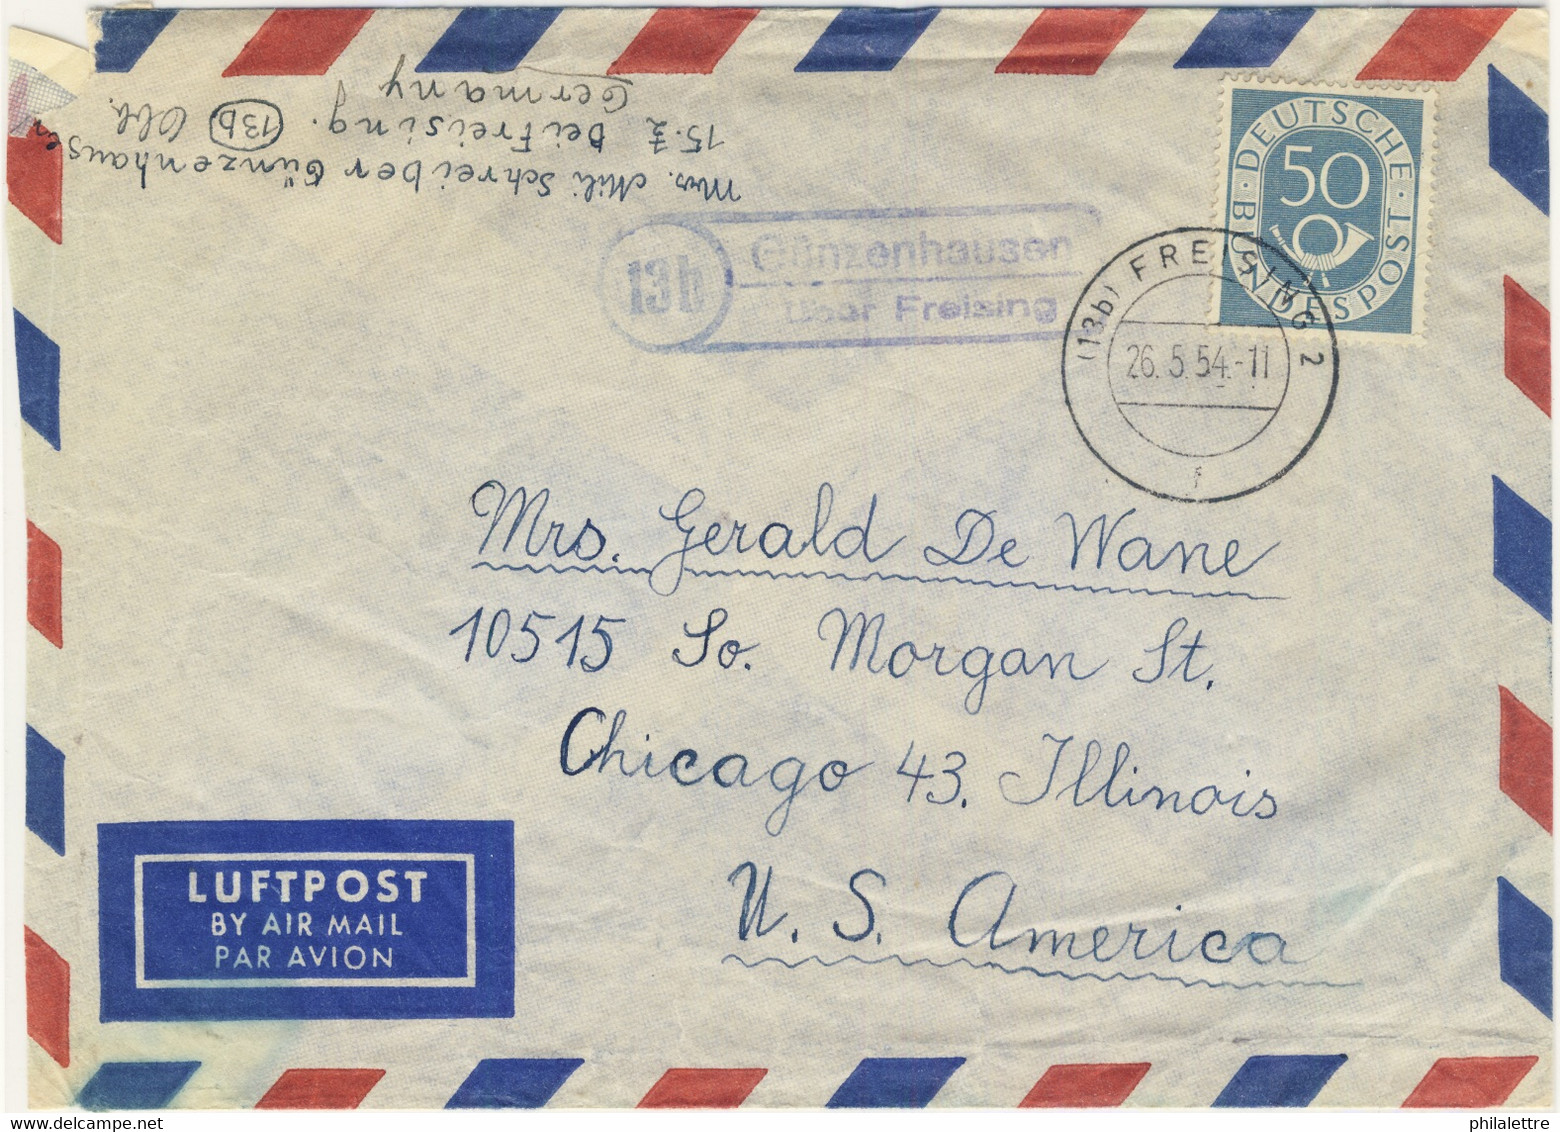 Mrs. Mili Schreiber Günzenhausen
15. Z bei Freising. 13b Obb.
Germany
13b
Günzenhausen
über Freising
DEUTSCHE BUNDESPOST
50
(13b) FREISING 2
26.5.54.-11
f
Mrs. Gerald De Wane
10515 So. Morgan St.
Chicago 43. Illinois
U. S. America
LUFTPOST
BY AIR MAIL
PAR AVION
philalettre